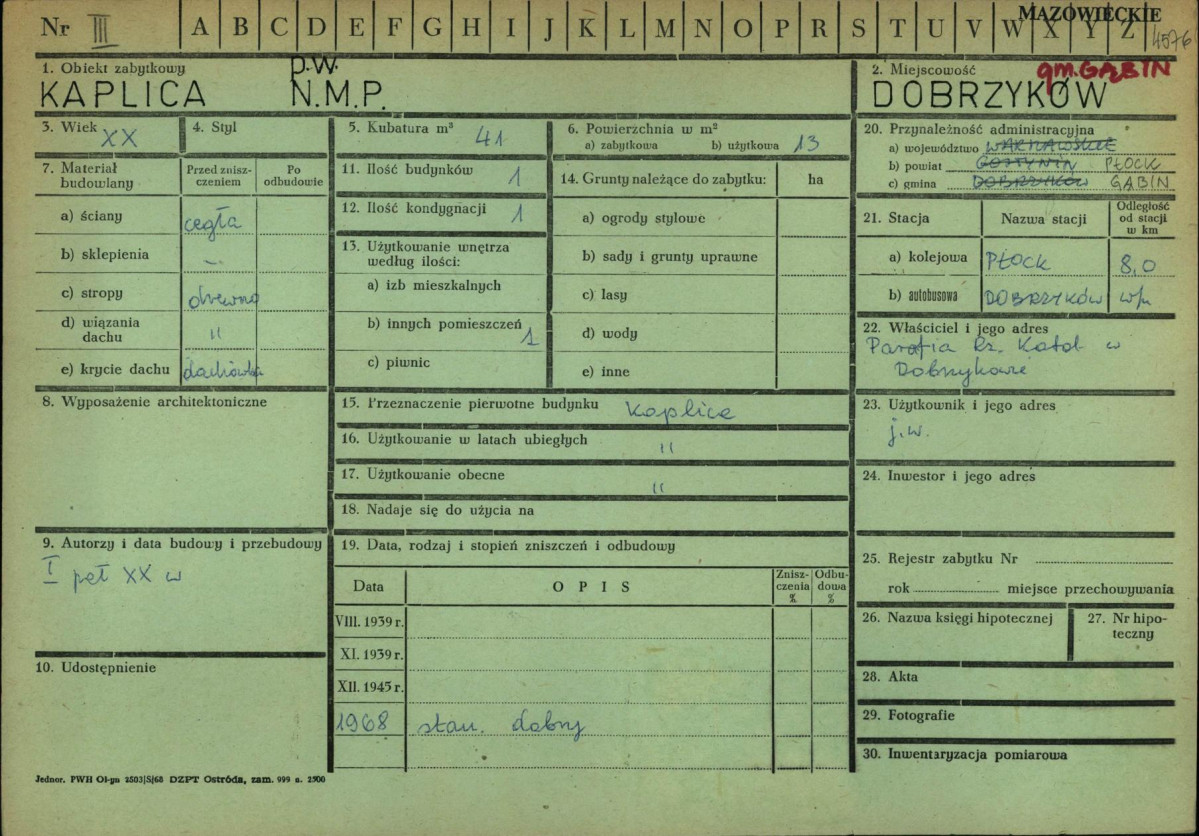 Nr III A B C D E F G H I J K L M N O P R S T U V W X Y Z
MAZOWIECKIE
4576
1. Obiekt zabytkowy
p.w.
KAPLICA N.M.P.
2. Miejscowość
gm. GĄBIN
DOBRZYKÓW
3. Wiek XX
4. Styl
5. Kubatura m³ 41
6. Powierzchnia w m²
a) zabytkowa b) użytkowa 13
7. Materiał budowlany
Przed zniszczeniem
Po odbudowie
a) ściany cegła
b) sklepienia –
c) stropy drewno
d) wiązania dachu "
e) krycie dachu dachówka
8. Wyposażenie architektoniczne
9. Autorzy i data budowy i przebudowy
I poł XX w
10. Udostępnienie
11. Ilość budynków 1
12. Ilość kondygnacji 1
13. Użytkowanie wnętrza
według ilości:
a) izb mieszkalnych
b) innych pomieszczeń 1
c) piwnic
14. Grunty należące do zabytku: ha
a) ogrody stylowe
b) sady i grunty uprawne
c) lasy
d) wody
e) inne
15. Przeznaczenie pierwotne budynku kaplica
16. Użytkowanie w latach ubiegłych "
17. Użytkowanie obecne "
18. Nadaje się do użycia na
19. Data, rodzaj i stopień zniszczeń i odbudowy
Data
OPIS
Zniszczenia %
Odbudowa %
VIII. 1939 r.
XI. 1939 r.
XII. 1945 r.
1968 stan. dobry
20. Przynależność administracyjna
a) województwo WARSZAWSKIE
b) powiat GOSTYNIN PŁOCK
c) gmina DOBRZYKÓW GĄBIN
21. Stacja
Nazwa stacji
Odległość
od stacji
w km
a) kolejowa PŁOCK 8,0
b) autobusowa DOBRZYKÓW w/m
22. Właściciel i jego adres
Parafia Rz. Katol. w
Dobrzykowie
23. Użytkownik i jego adres
j.w.
24. Inwestor i jego adres
25. Rejestr zabytku Nr
rok miejsce przechowywania
26. Nazwa księgi hipotecznej
27. Nr hipoteczny
28. Akta
29. Fotografie
30. Inwentaryzacja pomiarowa
Jednor. PWH Ol-yn 2503/S/68 DZPT Ostróda, zam. 999 n. 2500